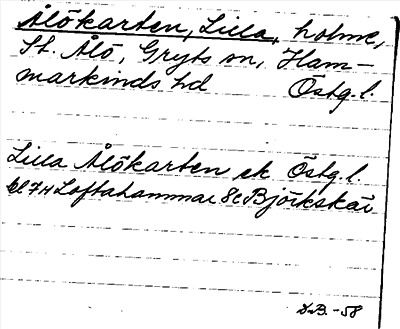 Ålökarten, Lilla, holme,
St. Ålö, Gryts sn, Ham-
markinds hd Östg.l.
Lilla Ålökarten ek Östg.l.
bl 7H Loftahammar 8c Björkskär
D.B. -58